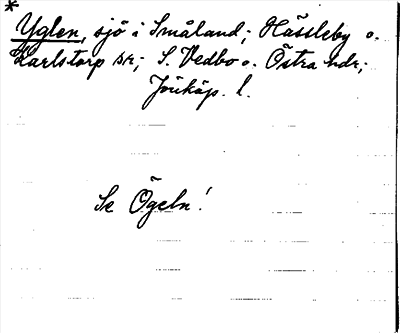 *
Yglen, sjö i Småland; Hässleby o.
Karlstorp sr; S. Vedbo o. Östra hdr;
Jönköp. l.
Se Ögeln!